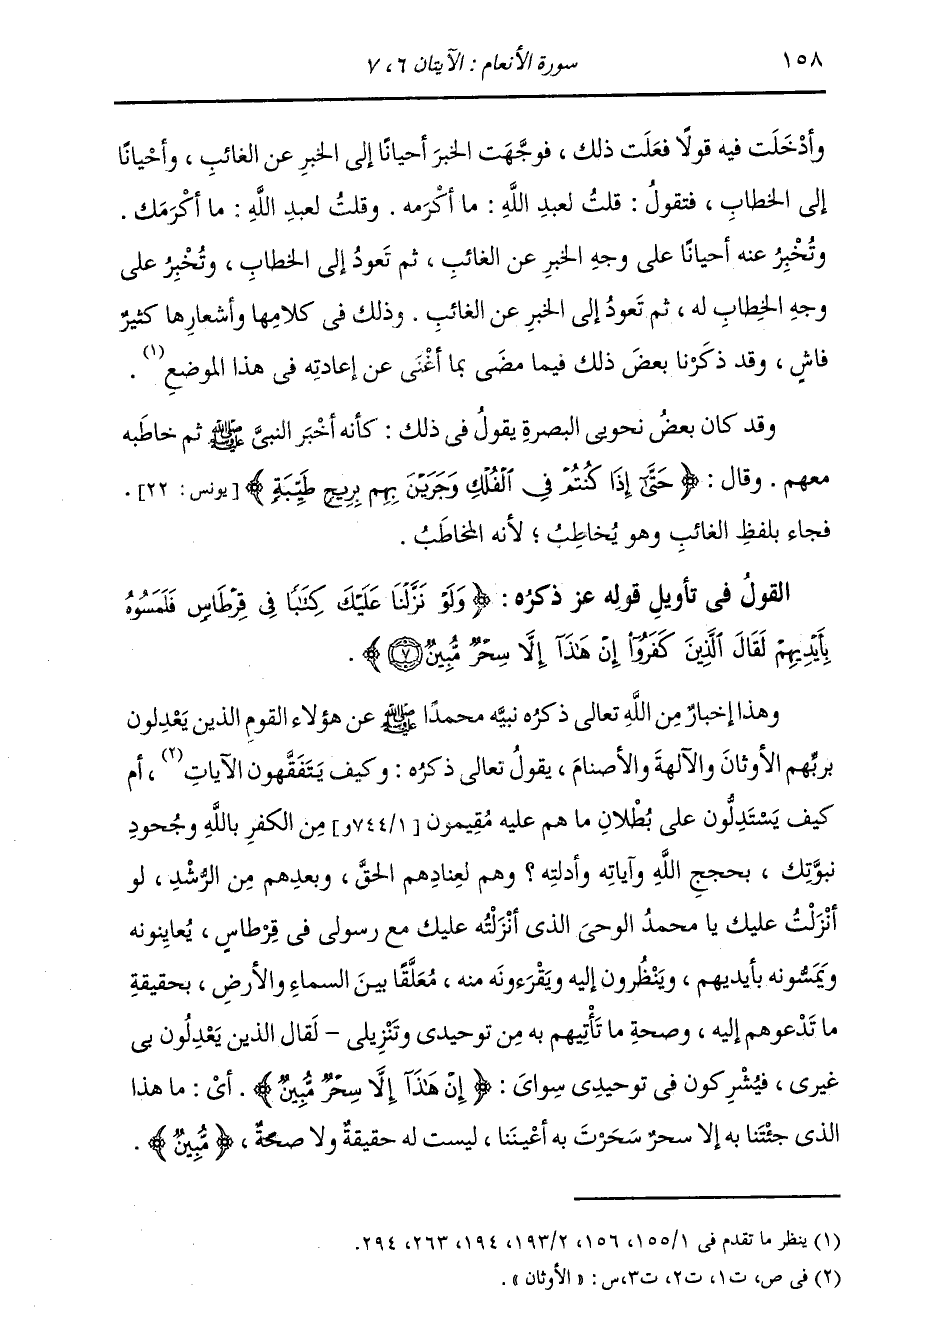 ١٥٨ سورة الأنعام : الآيتان ٦ ، ٧
وأدْخَلَت فيه قولًا فعَلَت ذلك ، فوجَّهَت الخبرَ أحيانًا إلى الخبرِ عن الغائبِ ، وأحْيانًا
إلى الخطابِ ، فتقولُ : قلتُ لعبدِ اللَّهِ : ما أكْرَمه . وقلتُ لعبدِ اللَّهِ : ما أكْرَمَك .
وتُخْبِرُ عنه أحيانًا على وجهِ الخبرِ عن الغائبِ ، ثم تَعودُ إلى الخطابِ ، وتُخْبِرُ على
وجهِ الخِطابِ له ، ثم تَعودُ إلى الخبرِ عن الغائبِ . وذلك فى كلامِها وأشعارِها كثيرٌ
فاشٍ ، وقد ذكَرْنا بعضَ ذلك فيما مضَى بما أغْنَى عن إعادتِه فى هذا الموضعِ (١) .
وقد كان بعضُ نحويى البصرةِ يقولُ فى ذلك : كأنه أخْبَر النبىَّ ﷺ ثم خاطَبه
معهم . وقال : ﴿ حَتَّىٰٓ إِذَا كُنتُمْ فِى ٱلْفُلْكِ وَجَرَيْنَ بِهِم بِرِيحٍ طَيِّبَةٍ ﴾ [ يونس : ٢٢] .
فجاء بلفظِ الغائبِ وهو يُخاطِبُ ؛ لأنه المخاطَبُ .
القولُ فى تأويلِ قولِه عز ذكرُه : ﴿ وَلَوْ نَزَّلْنَا عَلَيْكَ كِتَٰبًا فِى قِرْطَاسٍ فَلَمَسُوهُ
بِأَيْدِيهِمْ لَقَالَ ٱلَّذِينَ كَفَرُوٓا۟ إِنْ هَٰذَآ إِلَّا سِحْرٌ مُّبِينٌ ﴿٧﴾ ﴾ .
وهذا إخبارٌ مِن اللَّهِ تعالى ذكرُه نبيَّه محمدًا ﷺ عن هؤلاء القومِ الذين يَعْدِلون
بربِّهم الأوثانَ والآلهةَ والأصنامَ ، يقولُ تعالى ذكرُه : وكيف يَتَفَقَّهون الآياتِ (٢) ، أم
كيف يَسْتَدِلُّون على بُطْلانِ ما هم عليه مُقِيمون [ ٧٤٤/١و ] مِن الكفرِ باللَّهِ وجُحودِ
نبوَّتِك ، بحججِ اللَّهِ وآياتِه وأدلتِه ؟ وهم لعِنادِهم الحقَّ ، وبعدِهم مِن الرُّشْدِ ، لو
أنْزَلْتُ عليك يا محمدُ الوحىَ الذى أنْزَلْتُه عليك مع رسولى فى قِرْطاسٍ ، يُعاينونه
ويَمَسُّونه بأيديهم ، ويَنْظُرون إليه ويَقْرَءونَه منه ، مُعَلَّقًا بينَ السماءِ والأرضِ ، بحقيقةِ
ما تَدْعوهم إليه ، وصحةِ ما تَأْتِيهم به مِن توحيدى وتَنْزِيلى – لَقال الذين يَعْدِلُون بى
غيرى ، فيُشْرِكون فى توحيدِى سِواىَ : ﴿ إِنْ هَٰذَآ إِلَّا سِحْرٌ مُّبِينٌ ﴾ . أىْ : ما هذا
الذى جئْتَنا به إلا سحرٌ سَحَرْتَ به أعْينَنا ، ليست له حقيقةٌ ولا صحةٌ ، ﴿ مُّبِينٌ ﴾ .
(١) ينظر ما تقدم فى ١٥٥/١، ١٥٦، ١٩٣/٢، ١٩٤، ٢٦٣، ٢٩٤.
(٢) فى ص، ت١، ت٢، ت٣،س : « الأوثان » .